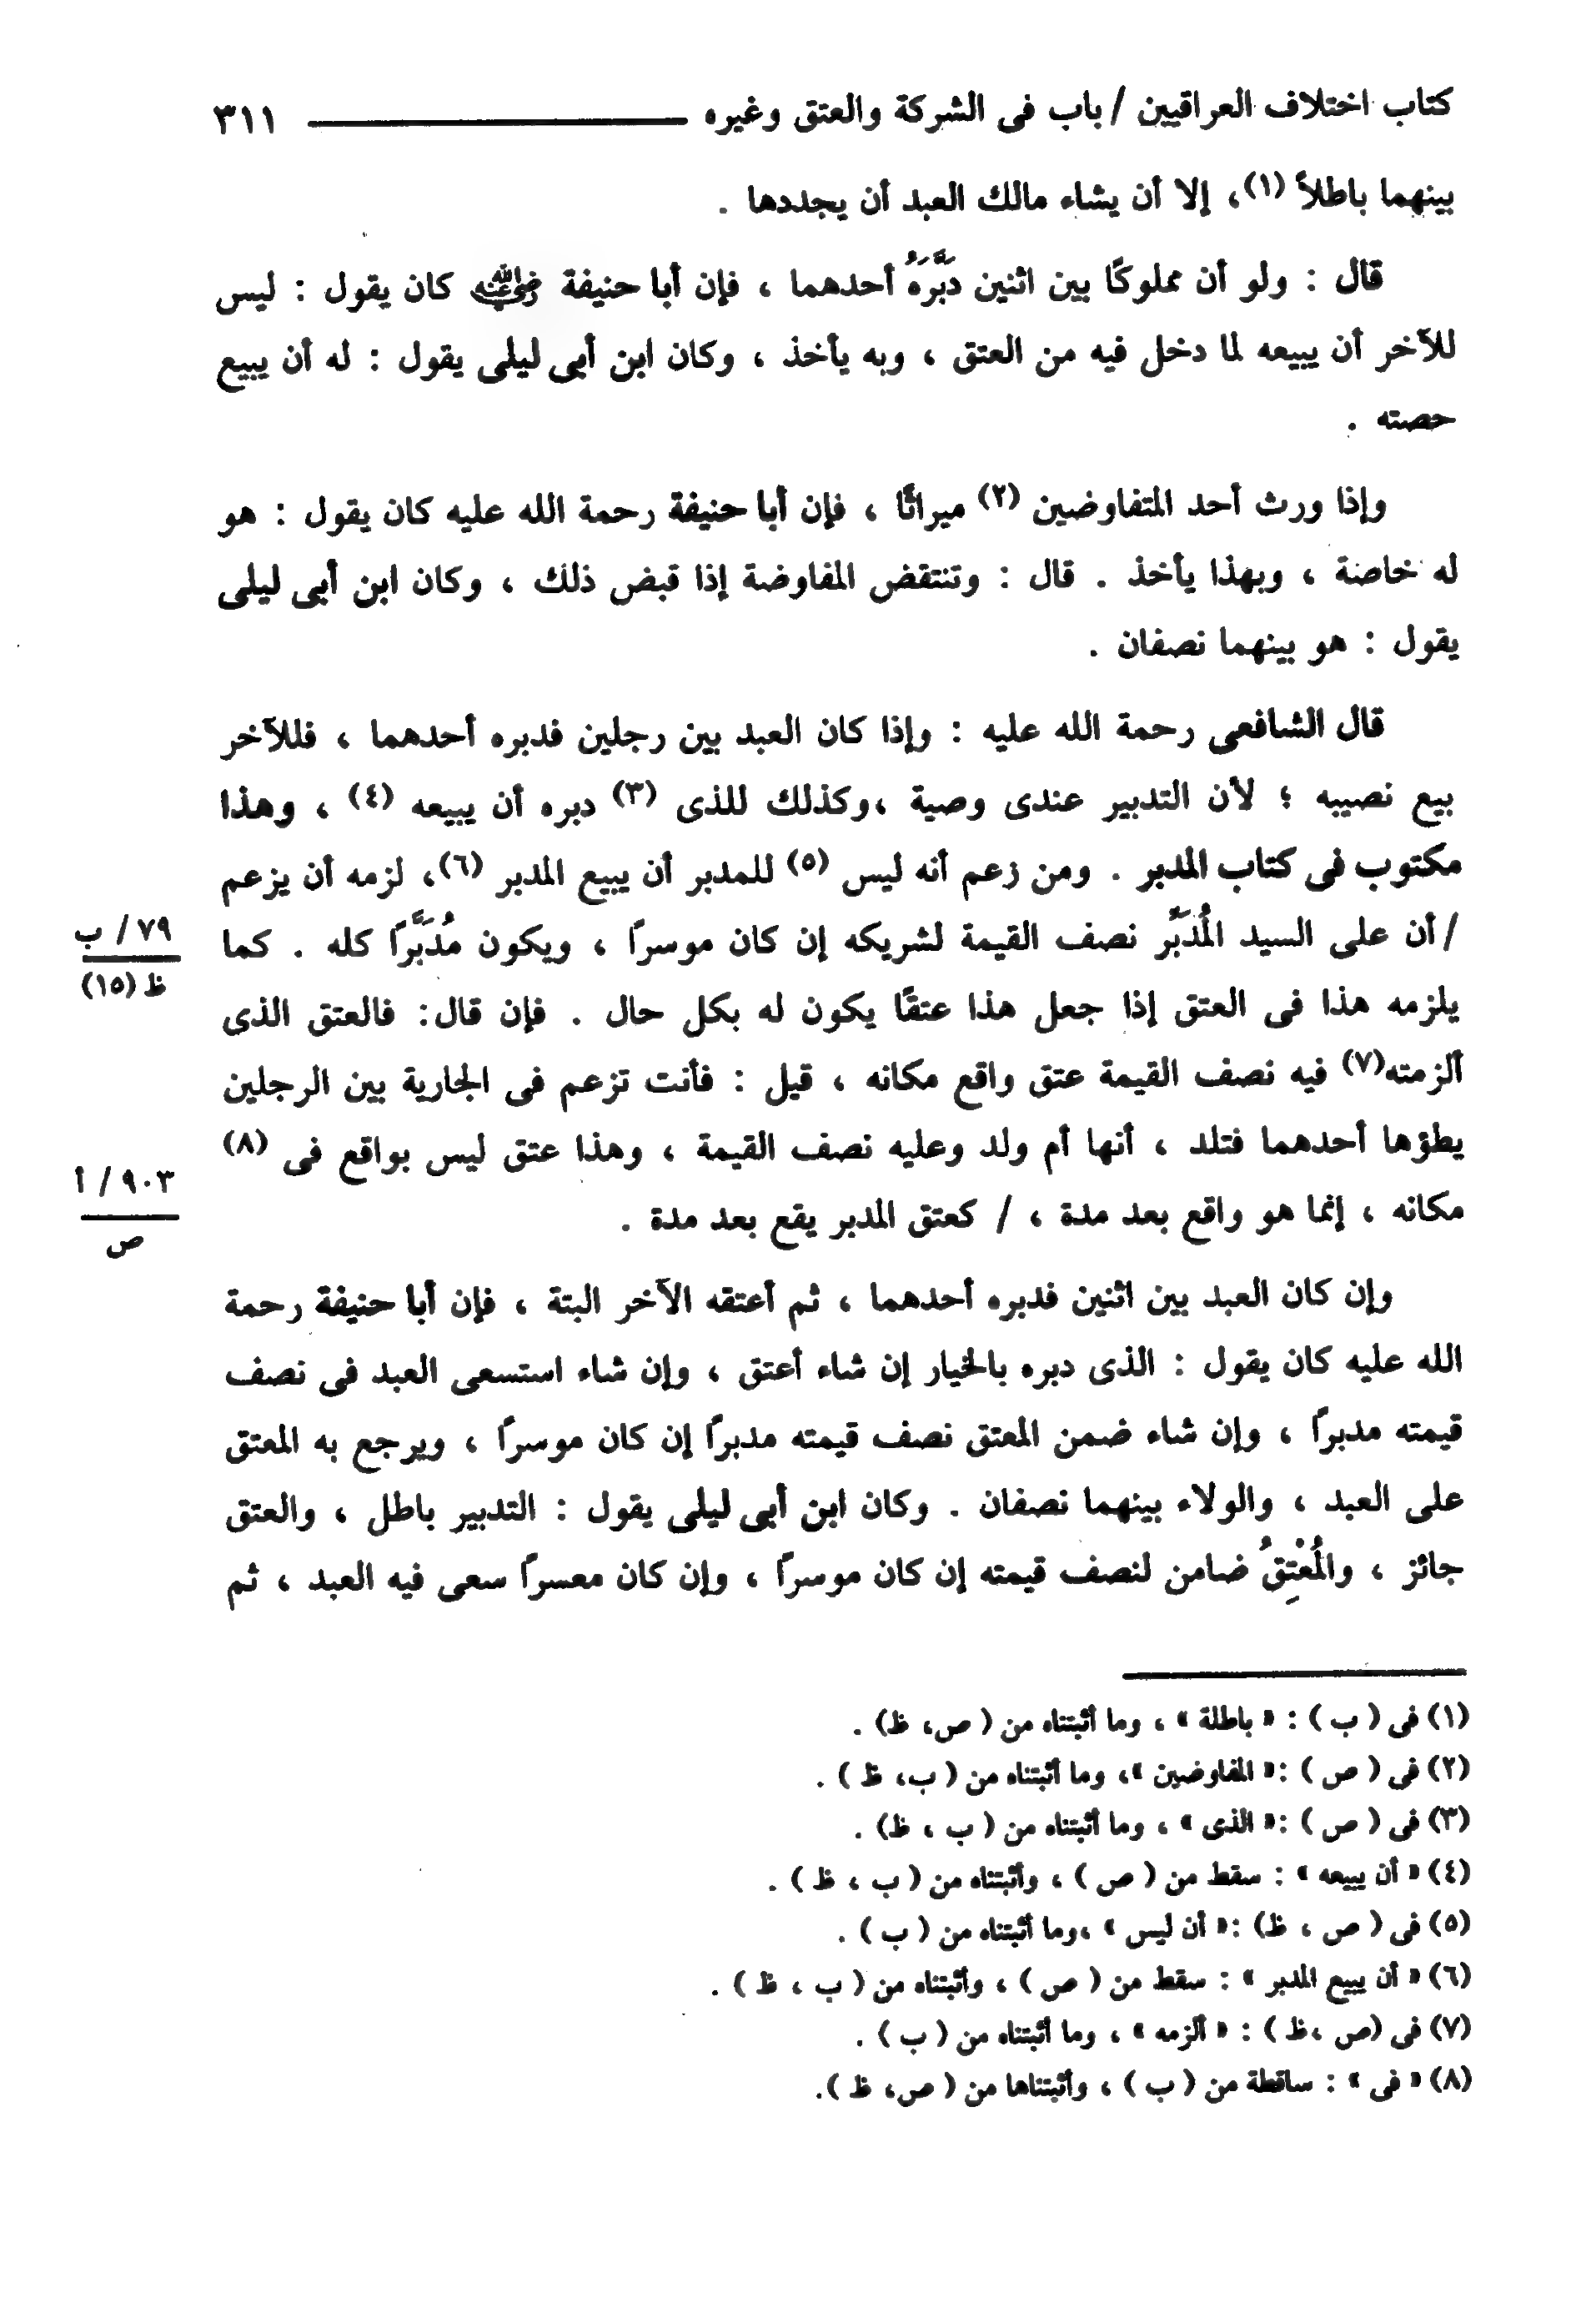 كتاب اختلاف العراقيين / باب فى الشركة والعتق وغيره ٣١١
بينهما باطلاً (١)، إلا أن يشاء مالك العبد أن يجددها .
قال : ولو أن مملوكًا بين اثنين دَبَّرَهُ أحدهما ، فإن أبا حنيفة رضي الله عنه كان يقول : ليس
للآخر أن يبيعه لما دخل فيه من العتق ، وبه يأخذ ، وكان ابن أبى ليلى يقول : له أن يبيع
حصته .
وإذا ورث أحد المتفاوضين (٢) ميراثًا ، فإن أبا حنيفة رحمة الله عليه كان يقول : هو
له خاصة ، وبهذا يأخذ . قال : وتنتقض المفاوضة إذا قبض ذلك ، وكان ابن أبى ليلى
يقول : هو بينهما نصفان .
قال الشافعى رحمة الله عليه : وإذا كان العبد بين رجلين فدبره أحدهما ، فللآخر
بيع نصيبه ؛ لأن التدبير عندى وصية ،وكذلك للذى (٣) دبره أن يبيعه (٤) ، وهذا
مكتوب فى كتاب المدبر . ومن زعم أنه ليس (٥) للمدبر أن يبيع المدبر (٦)، لزمه أن يزعم
/ أن على السيد المُدَبِّر نصف القيمة لشريكه إن كان موسرًا ، ويكون مُدَبَّرًا كله . كما
٧٩ / ب
ظ (١٥)
يلزمه هذا فى العتق إذا جعل هذا عتقًا يكون له بكل حال . فإن قال: فالعتق الذى
ألزمته(٧) فيه نصف القيمة عتق واقع مكانه ، قيل : فأنت تزعم فى الجارية بين الرجلين
يطؤها أحدهما فتلد ، أنها أم ولد وعليه نصف القيمة ، وهذا عتق ليس بواقع فى (٨)
مكانه ، إنما هو واقع بعد مدة ، / كعتق المدبر يقع بعد مدة .
٩٠٣ / أ
ص
وإن كان العبد بين اثنين فدبره أحدهما ، ثم أعتقه الآخر البتة ، فإن أبا حنيفة رحمة
الله عليه كان يقول : الذى دبره بالخيار إن شاء أعتق ، وإن شاء استسعى العبد فى نصف
قيمته مدبرًا ، وإن شاء ضمن المعتق نصف قيمته مدبرًا إن كان موسرًا ، ويرجع به المعتق
على العبد ، والولاء بينهما نصفان . وكان ابن أبى ليلى يقول : التدبير باطل ، والعتق
جائز ، والمُعْتِقُ ضامن لنصف قيمته إن كان موسرًا ، وإن كان معسرًا سعى فيه العبد ، ثم
(١) فى ( ب ) : « باطلة » ، وما أثبتناه من ( ص، ظ) .
(٢) فى ( ص ) :« المفاوضين »، وما أثبتناه من ( ب، ظ ) .
(٣) فى ( ص ) :« الذى » ، وما أثبتناه من ( ب ، ظ) .
(٤) « أن يبيعه » : سقط من ( ص ) ، وأثبتناه من ( ب ، ظ ) .
(٥) فى ( ص ، ظ) :« أن ليس » ،وما أثبتناه من ( ب ) .
(٦) « أن يبيع المدبر » : سقط من ( ص ) ، وأثبتناه من ( ب ، ظ ) .
(٧) فى (ص ،ظ ) : « ألزمه » ، وما أثبتناه من ( ب ) .
(٨) « فى » : ساقطة من ( ب ) ، وأثبتناها من ( ص، ظ ).